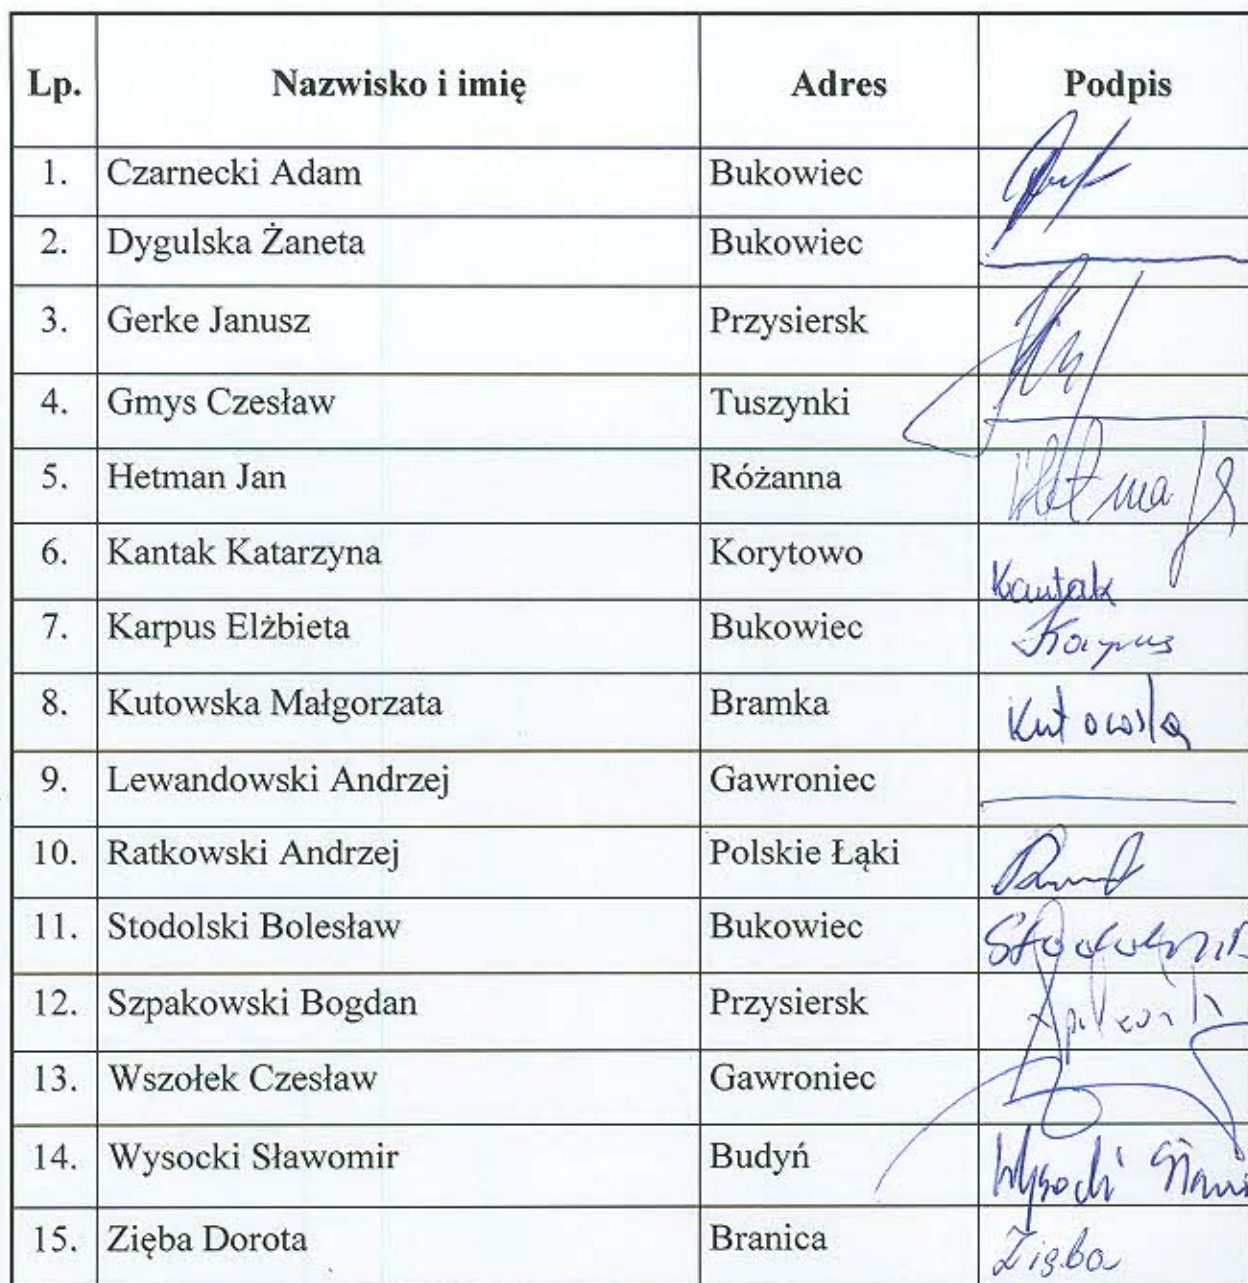 Lp. Nazwisko i imię Adres Podpis
1. Czarnecki Adam Bukowiec
2. Dygulska Żaneta Bukowiec
3. Gerke Janusz Przysiersk
4. Gmys Czesław Tuszynki
5. Hetman Jan Różanna
6. Kantak Katarzyna Korytowo Kantak
7. Karpus Elżbieta Bukowiec Karpus
8. Kutowska Małgorzata Bramka Kutowska
9. Lewandowski Andrzej Gawroniec
10. Ratkowski Andrzej Polskie Łąki
11. Stodolski Bolesław Bukowiec
12. Szpakowski Bogdan Przysiersk
13. Wszołek Czesław Gawroniec
14. Wysocki Sławomir Budyń Wysocki
15. Zięba Dorota Branica Zięba